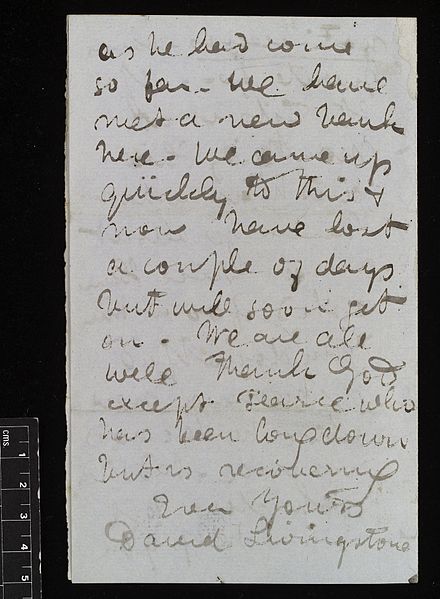 as he had come
so far - We have
met a new bank
here - We came up
quickly to this &
now have lost
a couple of days
but will soon get
on - We are all
well Thank God
except who
has been long down
but is recovering
Ever Yours
David Livingstone
cms
1
2
3
4
5